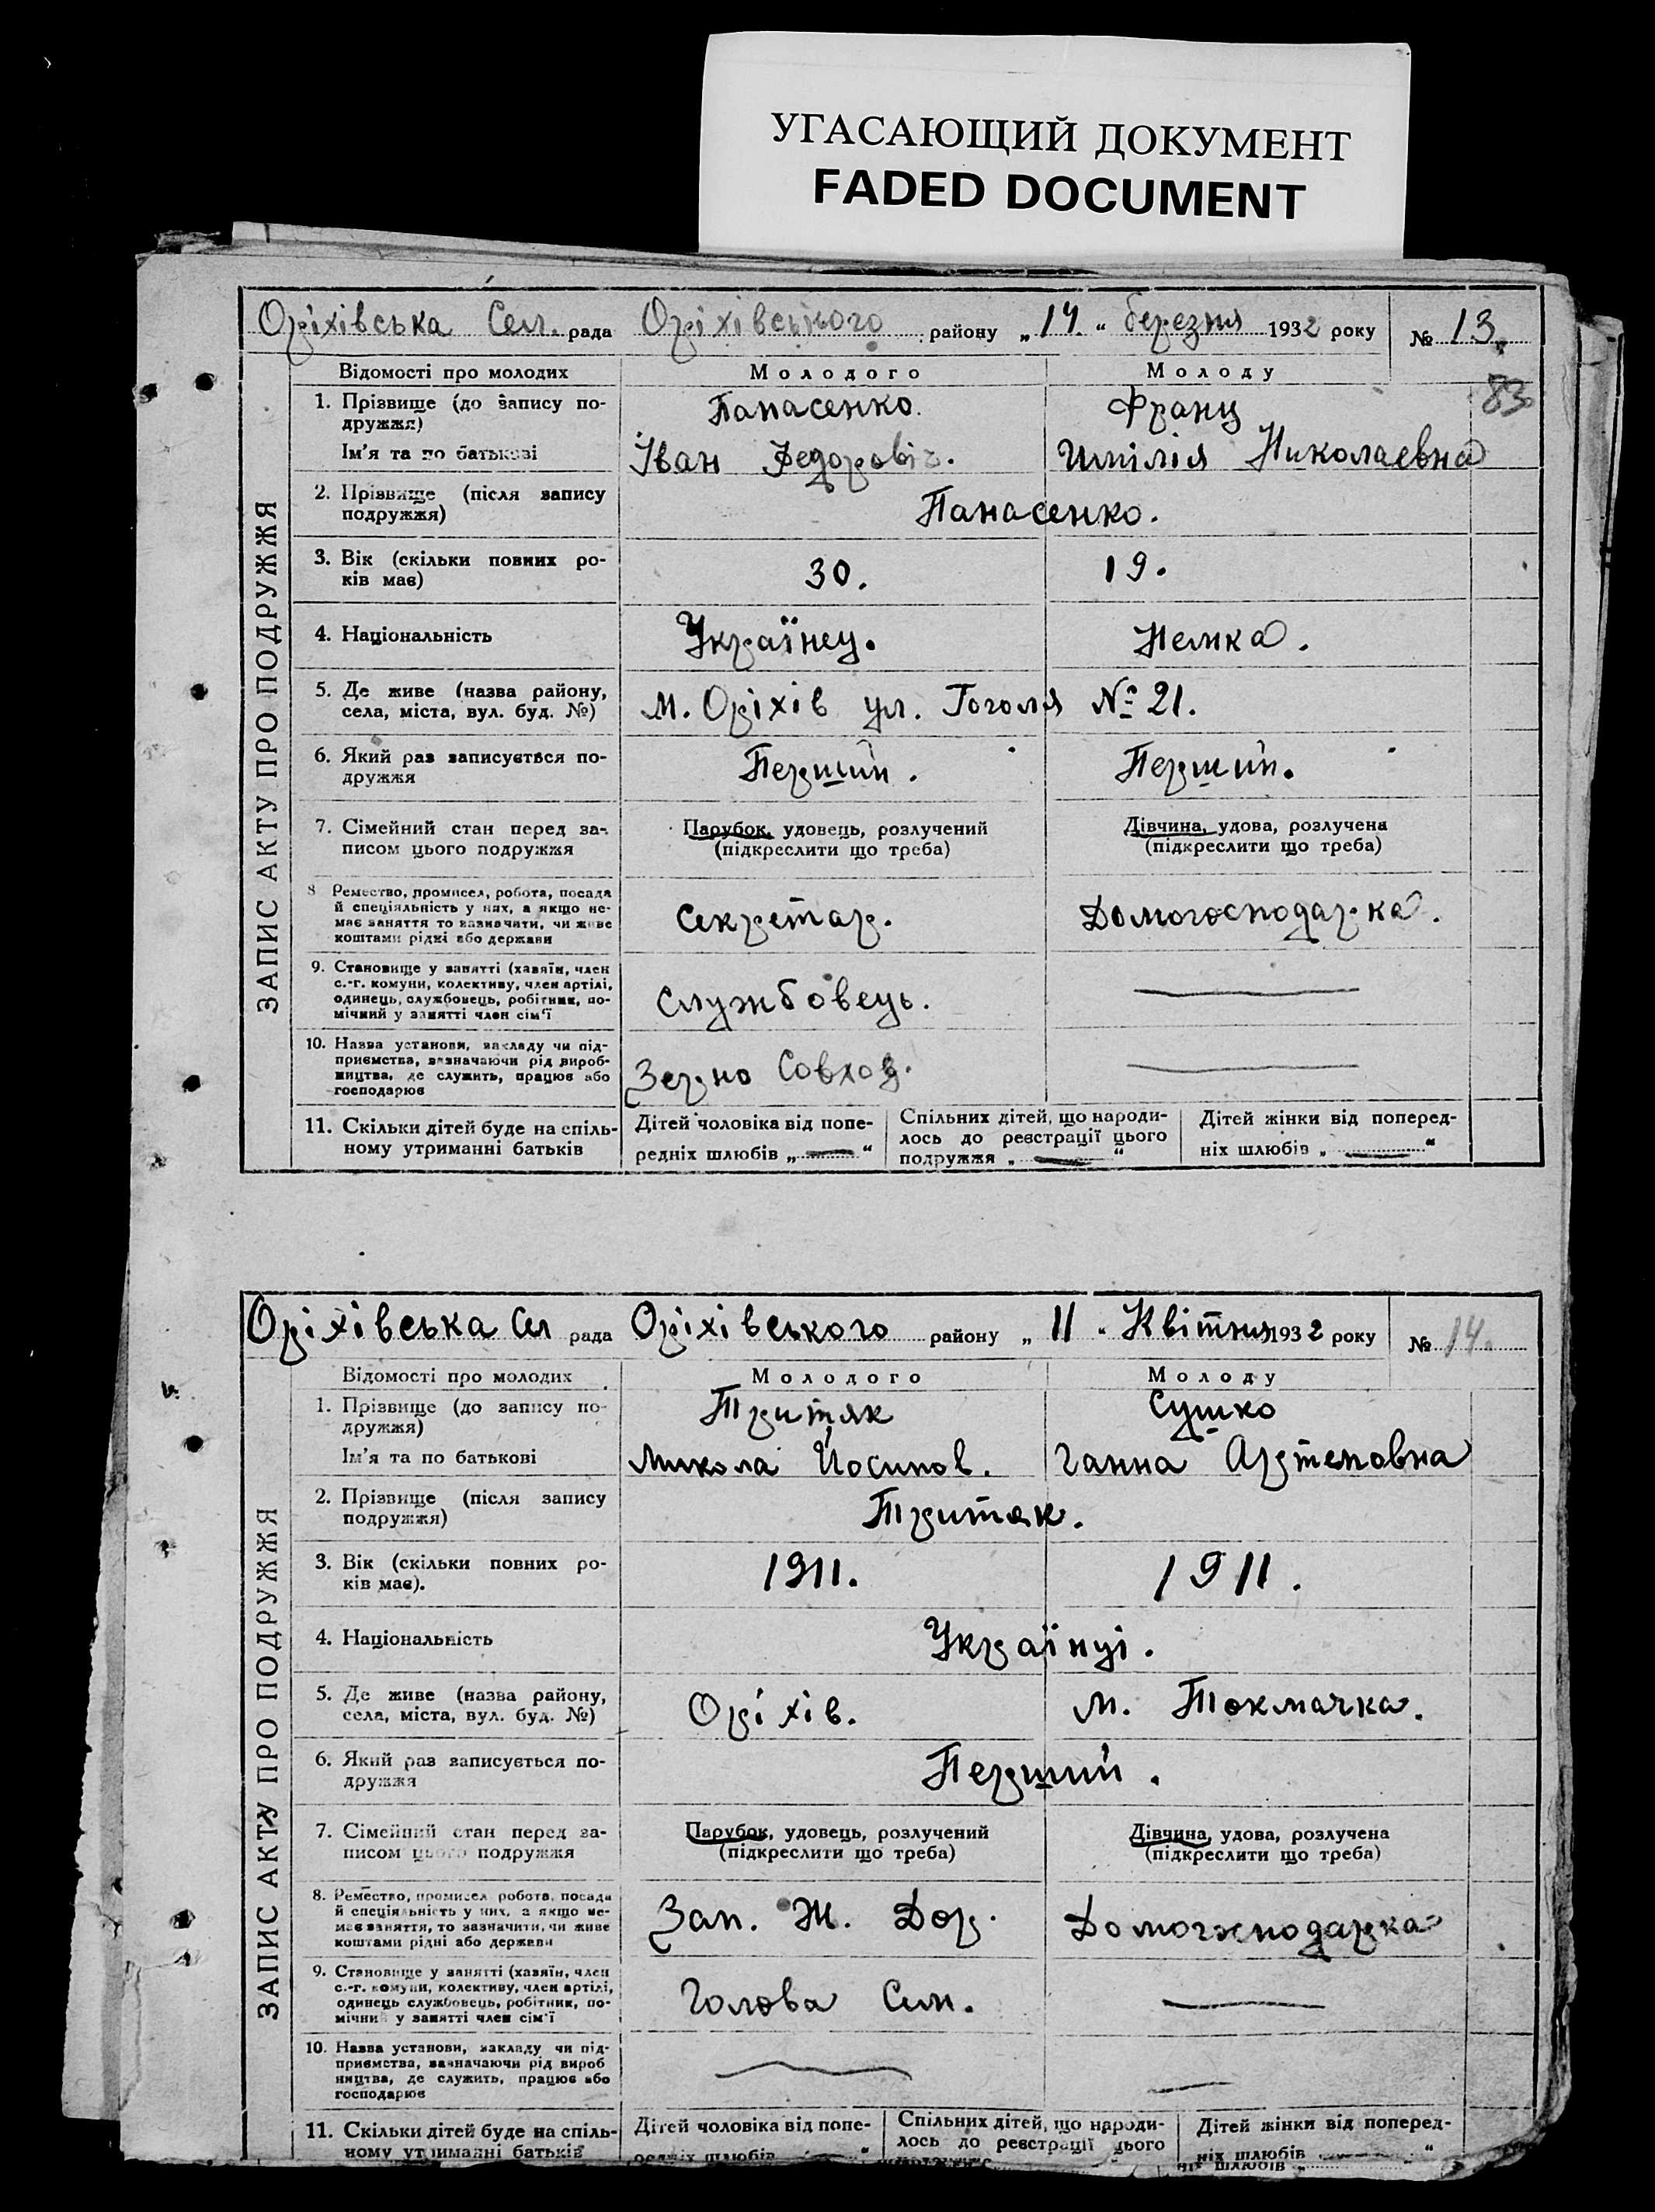 УГАСАЮЩИЙ ДОКУМЕНТ
FADED DOCUMENT
Оріхівська Сел. рада Оріхівського району „14.“ березня 1932 року № 13.
Відомості про молодих Молодого Молоду
83
ЗАПИС АКТУ ПРО ПОДРУЖЖЯ
1. Прізвище (до запису по-
дружжя)
Панасенко. Франц
Ім'я та по батькові Іван Федоровіч. Николаевна
2. Прізвище (після запису
подружжя)
Панасенко.
3. Вік (скільки повних ро-
ків має)
30. 19.
4. Національність Українец. Немка.
5. Де живе (назва району,
села, міста, вул. буд. №)
м. Оріхів ул. Гоголя № 21.
6. Який раз записується по-
дружжя
Перший. Перший.
7. Сімейний стан перед за-
писом цього подружжя
Парубок, удовець, розлучений
(підкреслити що треба)
Дівчина, удова, розлучена
(підкреслити що треба)
8 Ремество, промисел, робота, посада
й спеціяльність у них, а якщо не-
має заняття то зазначити, чи живе
коштами рідні або держави
Секретар. Домогосподарка.
9. Становище у занятті (хазяїн, член
с.-г. комуни, колективу, член артілі,
одинець, службовець, робітник, по-
мічний у занятті член сім'ї
Службовець.
10. Назва установи, закладу чи під-
приємства, зазначаючи рід вироб-
ництва, де служить, працює або
господарює
Зерно Совхоз.
11. Скільки дітей буде на спіль-
ному утриманні батьків
Дітей чоловіка від попе-
редніх шлюбів „ — “
Спільних дітей, що народи-
лось до реєстрації цього
подружжя „ — “
Дітей жінки від поперед-
ніх шлюбів „ — “
Оріхівська Сел рада Оріхівського району „ 11 “ Квітня 1932 року № 14.
Відомості про молодих Молодого Молоду
ЗАПИС АКТУ ПРО ПОДРУЖЖЯ
1. Прізвище (до запису по-
дружжя)
Притяк Сушко
Ім'я та по батькові Микола Йосипов. Ганна Артемовна
2. Прізвище (після запису
подружжя)
Притяк.
3. Вік (скільки повних ро-
ків має).
1911. 1911.
4. Національність Українці.
5. Де живе (назва району,
села, міста, вул. буд. №)
Оріхів. М. Токмачка.
6. Який раз записується по-
дружжя
Перший.
7. Сімейний стан перед за-
писом цього подружжя
Парубок, удовець, розлучений
(підкреслити що треба)
Дівчина, удова, розлучена
(підкреслити що треба)
8. Ремество, промисел робота, посада
й спеціяльність у них, а якщо не-
має заняття, то зазначити, чи живе
коштами рідні або держави
Зап. Ж. Дор. Домогосподарка
9. Становище у занятті (хазяїн, член
с.-г. комуни, колективу, член артілі,
одинець службовець, робітник, по-
мічний у занятті член сім'ї
Голова
10. Назва установи, закладу чи під-
приємства, зазначаючи рід вироб
ництва, де служить, працює або
господарює
11. Скільки дітей буде на спіль-
ному утриманні батьків
Дітей чоловіка від попе-
редніх шлюбів „ “
Спільних дітей, що народи-
лось до реєстрації цього
Дітей жінки від поперед-
ніх шлюбів „ “
ніх шлюбів „